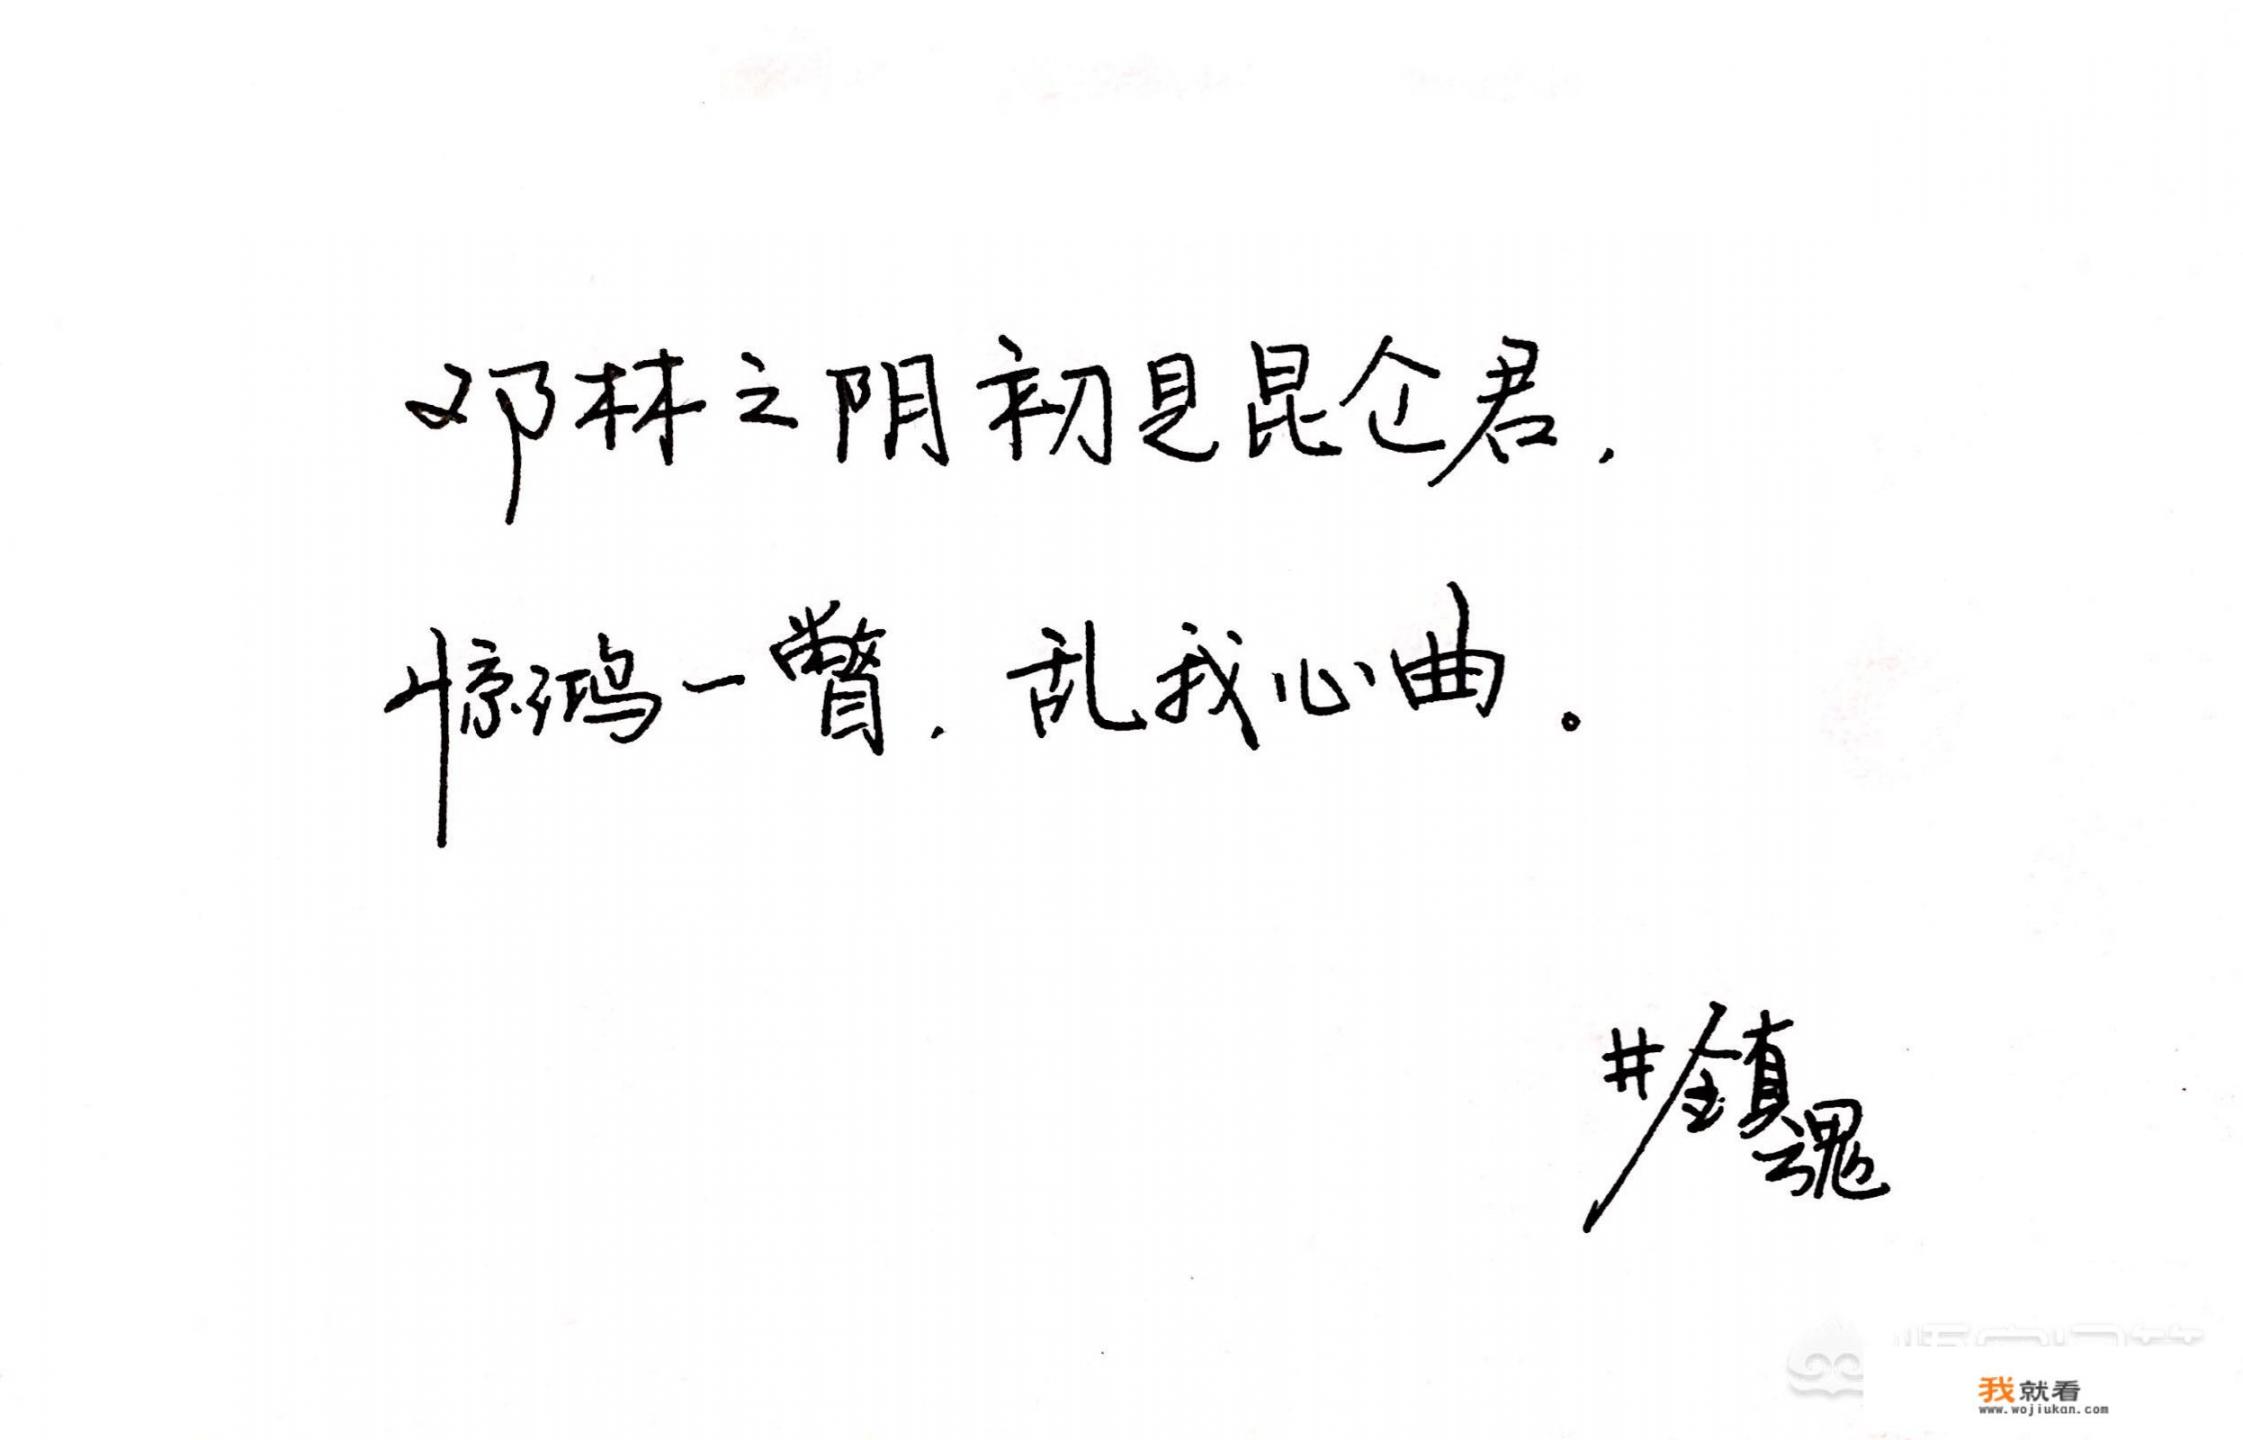 邓林之阴初是昆仑君，
惊鸿一瞥，乱我心曲。
#鎮魂
我就看
www.wojiukan.com